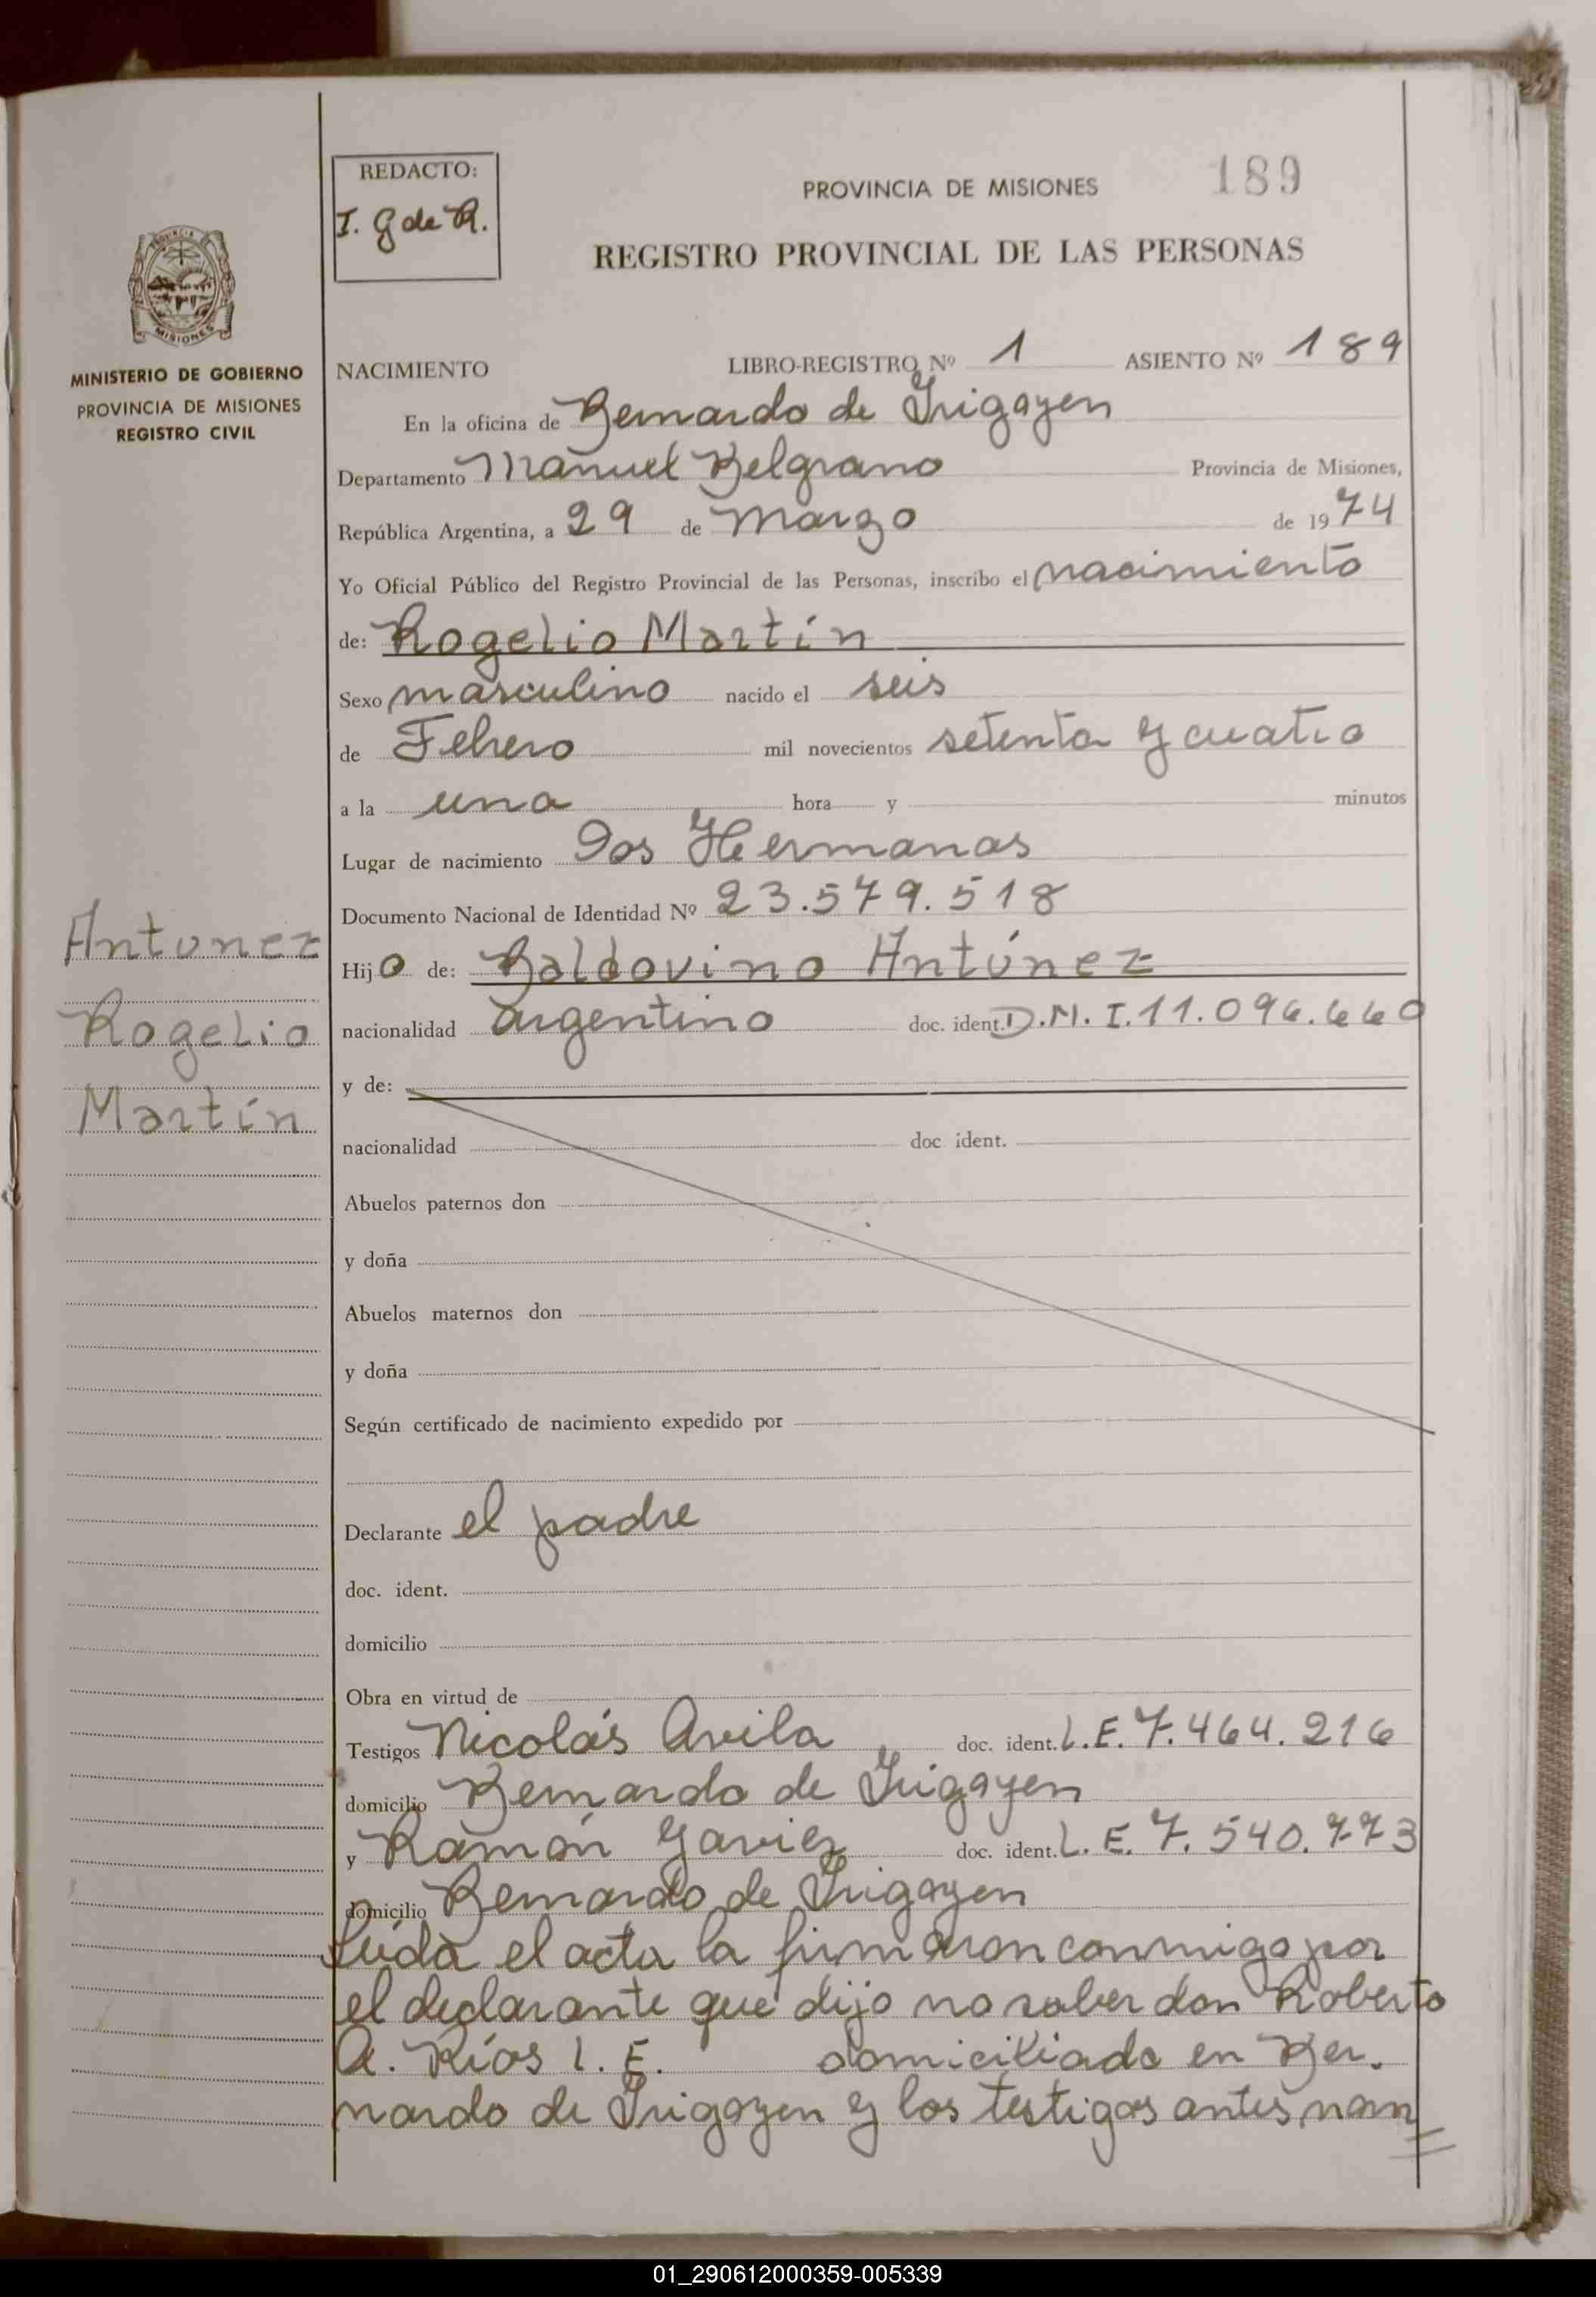 REDACTO:
I. G de R.
PROVINCIA DE MISIONES
189
REGISTRO PROVINCIAL DE LAS PERSONAS
PROVINCIA DE
MISIONES
MINISTERIO DE GOBIERNO
PROVINCIA DE MISIONES
REGISTRO CIVIL
Antunez
Rogelio
Martín
NACIMIENTO LIBRO-REGISTRO Nº 1 ASIENTO Nº 189
En la oficina de Bernardo de Irigoyen
Departamento Manuel Belgrano Provincia de Misiones,
República Argentina, a 29 de Marzo de 1974
Yo Oficial Público del Registro Provincial de las Personas, inscribo el nacimiento
de: Rogelio Martín
Sexo masculino nacido el seis
de Febrero mil novecientos setenta y cuatro
a la una hora y minutos
Lugar de nacimiento Dos Hermanas
Documento Nacional de Identidad Nº 23.579.518
Hijo de: Baldovino Antúnez
nacionalidad argentino doc. ident. D.N.I.11.096.660
y de:
nacionalidad doc. ident.
Abuelos paternos don
y doña
Abuelos maternos don
y doña
Según certificado de nacimiento expedido por
Declarante el padre
doc. ident.
domicilio
Obra en virtud de
Testigos Nicolás Avila doc. ident. L.E. 7.464.216
domicilio Bernardo de Irigoyen
y Ramón doc. ident. L.E. 7.540.773
domicilio Bernardo de Irigoyen
Leída el acta la firmaron conmigo por
el declarante que dijo no saber don Roberto
A. Ríos L.E. domiciliado en Ber.
nardo de Irigoyen y los testigos antes nom
01_290612000359-005339